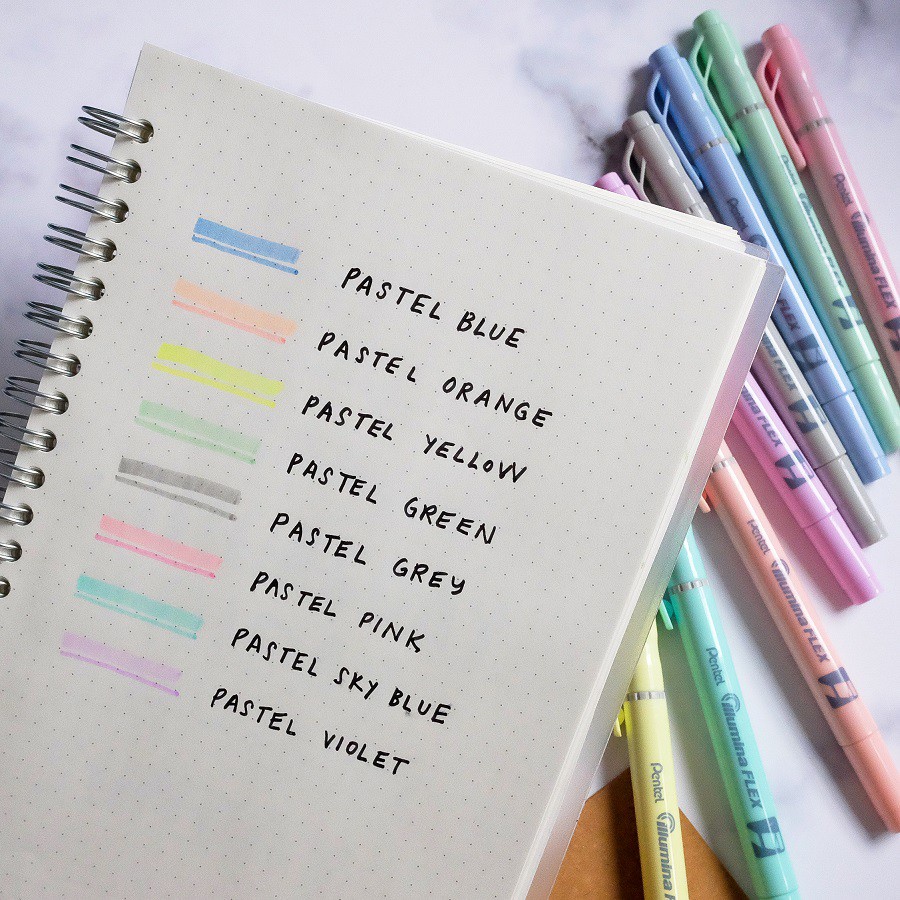 PASTEL BLUE
PASTEL ORANGE
PASTEL YELLOW
PASTEL GREEN
PASTEL GREY
PASTEL PINK
PASTEL SKY BLUE
PASTEL VIOLET
Pentel illumina FLEX
Pentel illumina FLEX
Pentel FLEX
illumina FLEX
Pentel illumina FLEX
Pentel illumina FLEX
Pentel illumina FLEX